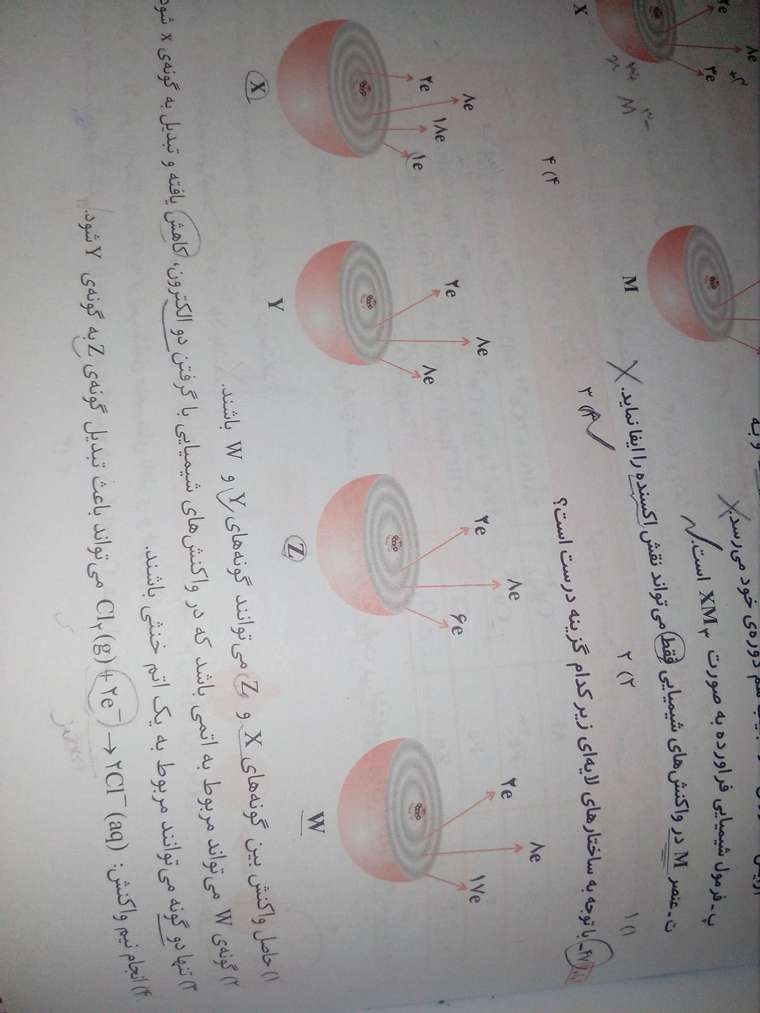 خود می‌رسد.
پ- فرمول شیمیایی فراورده به صورت XM۳ است.
ت- عنصر M در واکنش‌های شیمیایی فقط می‌تواند نقش اکسنده را ایفا نماید.
۱ (۱
۲ (۲
۳ (۳
۴ (۴
۴۷- با توجه به ساختارهای لایه‌ای زیر کدام گزینه درست است؟
۲e
۸e
۱۷e
W
۲e
۸e
۶e
Z
۲e
۸e
۸e
Y
۲e
۸e
۱۸e
۱e
X
M
X
۲e
۸e
۳e
۱) حاصل واکنش بین گونه‌های X و Z می‌توانند گونه‌های Y و W باشند.
۲) گونه‌ی W می‌تواند مربوط به اتمی باشد که در واکنش‌های شیمیایی با گرفتن دو الکترون، کاهش یافته و تبدیل به گونه‌ی X شود.
۳) تنها دو گونه می‌توانند مربوط به یک اتم خنثی باشند.
۴) انجام نیم واکنش: Cl۲(g) + ۲e⁻ → ۲Cl⁻(aq) می‌تواند باعث تبدیل گونه‌ی Z به گونه‌ی Y شود.